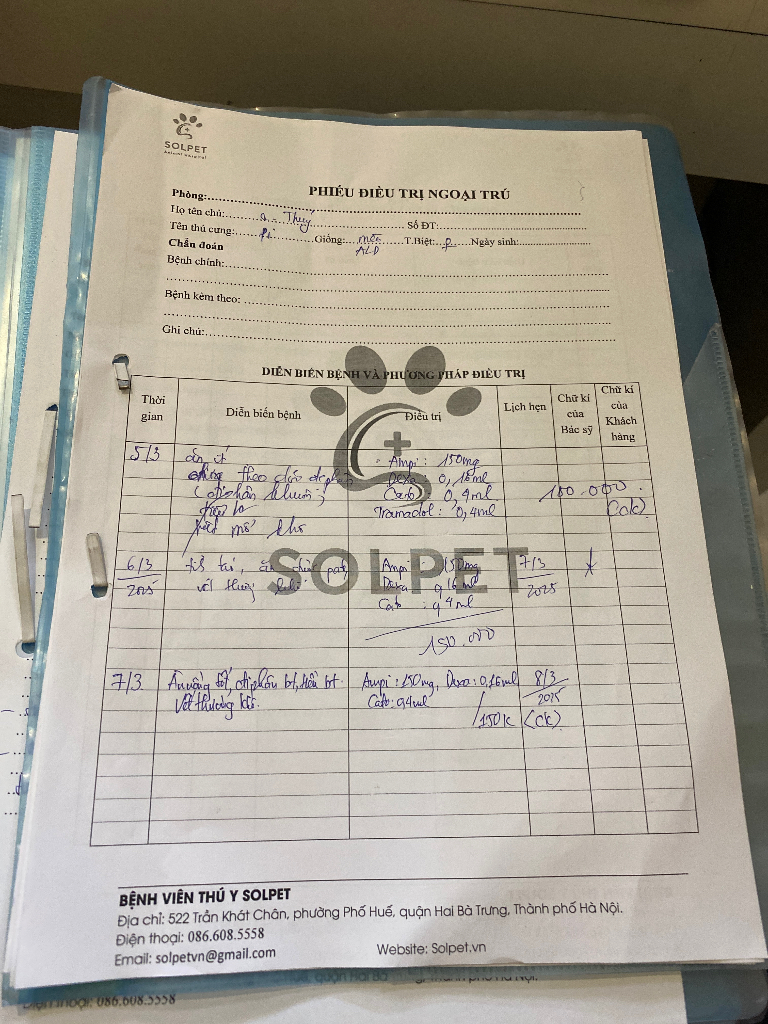 SOLPET
Animal Hospital
PHIẾU ĐIỀU TRỊ NGOẠI TRÚ
Phòng:
Họ tên chủ: a. Thuý Số ĐT:
Tên thú cưng: Pi Giống: mèo ALD T.Biệt: Ngày sinh:
Chẩn đoán
Bệnh chính:
Bệnh kèm theo:
Ghi chú:
DIỄN BIẾN BỆNH VÀ PHƯƠNG PHÁP ĐIỀU TRỊ
Thời gian Diễn biến bệnh Điều trị Lịch hẹn Chữ kí của Bác sỹ Chữ kí của Khách hàng
5/3 ăn ít Ampi: 150mg
theo dõi Dexa: 0,16ml
Cato: 0,4ml 150.000.
Tramadol: 0,4ml (ck)
mổ khô
6/3 2025 ăn Ampi: 150mg 7/3 2025
vết thương khô Dexa 0,16ml
Cato: 0,4ml
150.000
7/3 Ăn uống tốt, đi phân bt, tiểu bt. Ampi: 150mg, Dexa: 0,16ml 8/3 2025
Vết thương khô. Cato: 0,4ml
/150k (ck)
SOLPET
BỆNH VIỆN THÚ Y SOLPET
Địa chỉ: 522 Trần Khát Chân, phường Phố Huế, quận Hai Bà Trưng, Thành phố Hà Nội.
Điện thoại: 086.608.5558
Email: solpetvn@gmail.com Website: Solpet.vn
Điện thoại: 086.608.5558